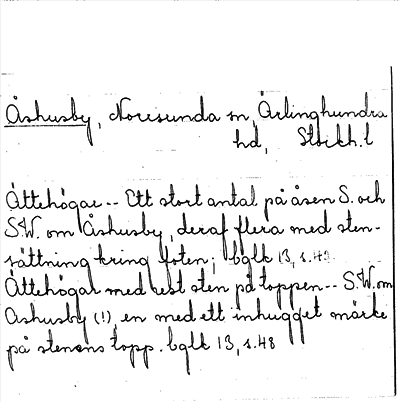 Åshusby, Norrsunda sn, Ärlinghundra
hd, Stockh.l
Ättehögar -- Ett stort antal på åsen S. och
S.W. om Åshusby, deraf flera med sten-
sättning kring foten; bglk 13, s.49
Ättehögar med rest sten på toppen -- S.W. om
Åshusby (!), en med ett inhugget märke
på stenens topp. bglk 13, s.48